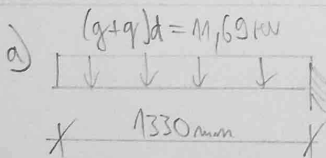 (g+q)d = 11,69 kN
a)
1330mm